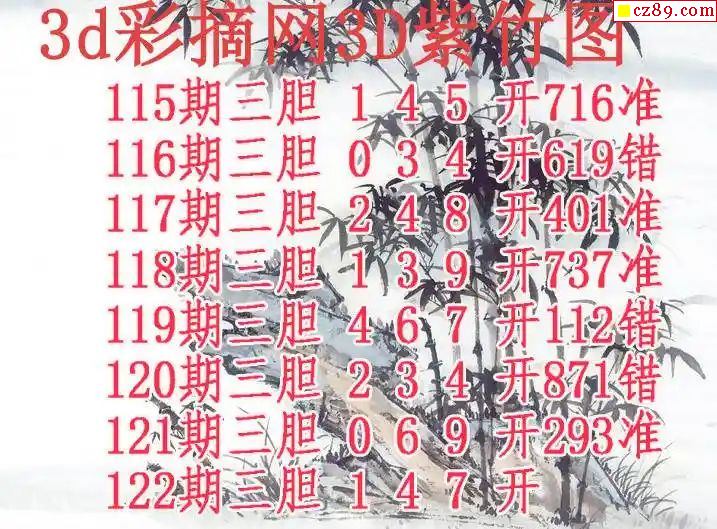 3d彩摘网3D紫竹图
cz89.com
115期三胆 1 4 5 开716准
116期三胆 0 3 4 开619错
117期三胆 2 4 8 开401准
118期三胆 1 3 9 开737准
119期三胆 4 6 7 开112错
120期三胆 2 3 4 开871错
121期三胆 0 6 9 开293准
122期三胆 1 4 7 开